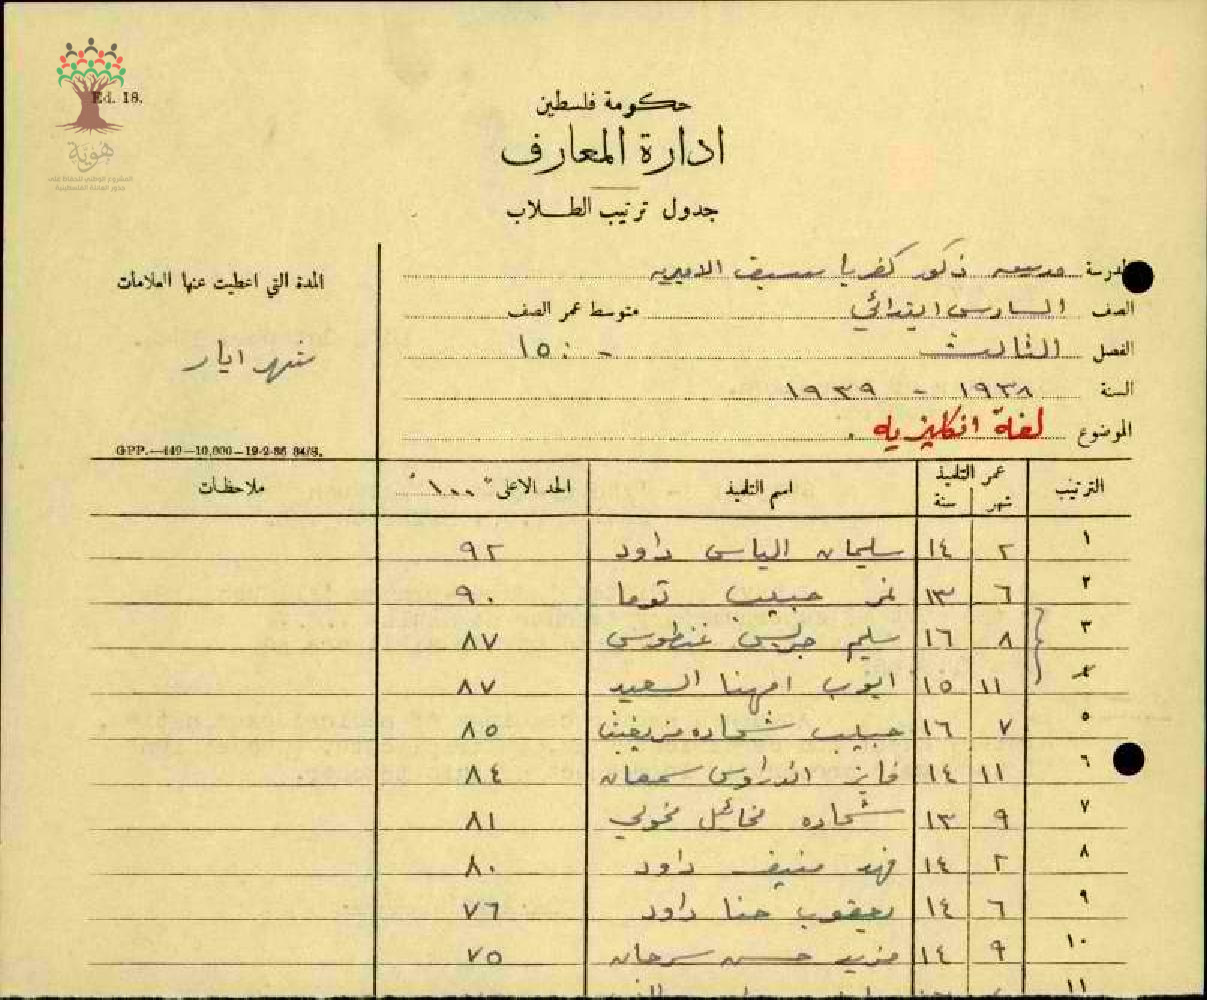 Ed. 18.
هوية
المشروع الوطني للحفاظ على
جذور العائلة الفلسطينية
حكومة فلسطين
ادارة المعارف
جدول ترتيب الطلاب
المدرسة مدرسة ذكور كفر ياسيف الاميريه
الصف السادس ابتدائي متوسط عمر الصف
الفصل الثالث - ١٥٠
السنة ١٩٣٨ - ١٩٣٩
الموضوع لغة انكليزيه .
المدة التي اعطيت عنها العلامات
شهر ايار
GPP.—449—10,000—19-2-36 84/S.
الترتيب عمر التلميذ شهر سنة اسم التلميذ الحد الاعلى "١٠٠" ملاحظات
١ ٢ ١٤ سليمان الياس داود ٩٢
٢ ٦ ١٣ نمر حبيب توما ٩٠
٣ ٨ ١٦ سليم جريس غنطوس ٨٧
٤ ١١ ١٥ ايوب امهنا السعيد ٨٧
٥ ٧ ١٦ حبيب شحاده ٨٥
٦ ١١ ١٤ فايز اندراوس سمعان ٨٤
٧ ٩ ١٣ شحاده مخائيل مخولي ٨١
٨ ٢ ١٤ فهد منيف داود ٨٠
٩ ٦ ١٤ يعقوب حنا داود ٧٦
١٠ ٩ ١٤ مزيد حسن سرحان ٧٥
١١